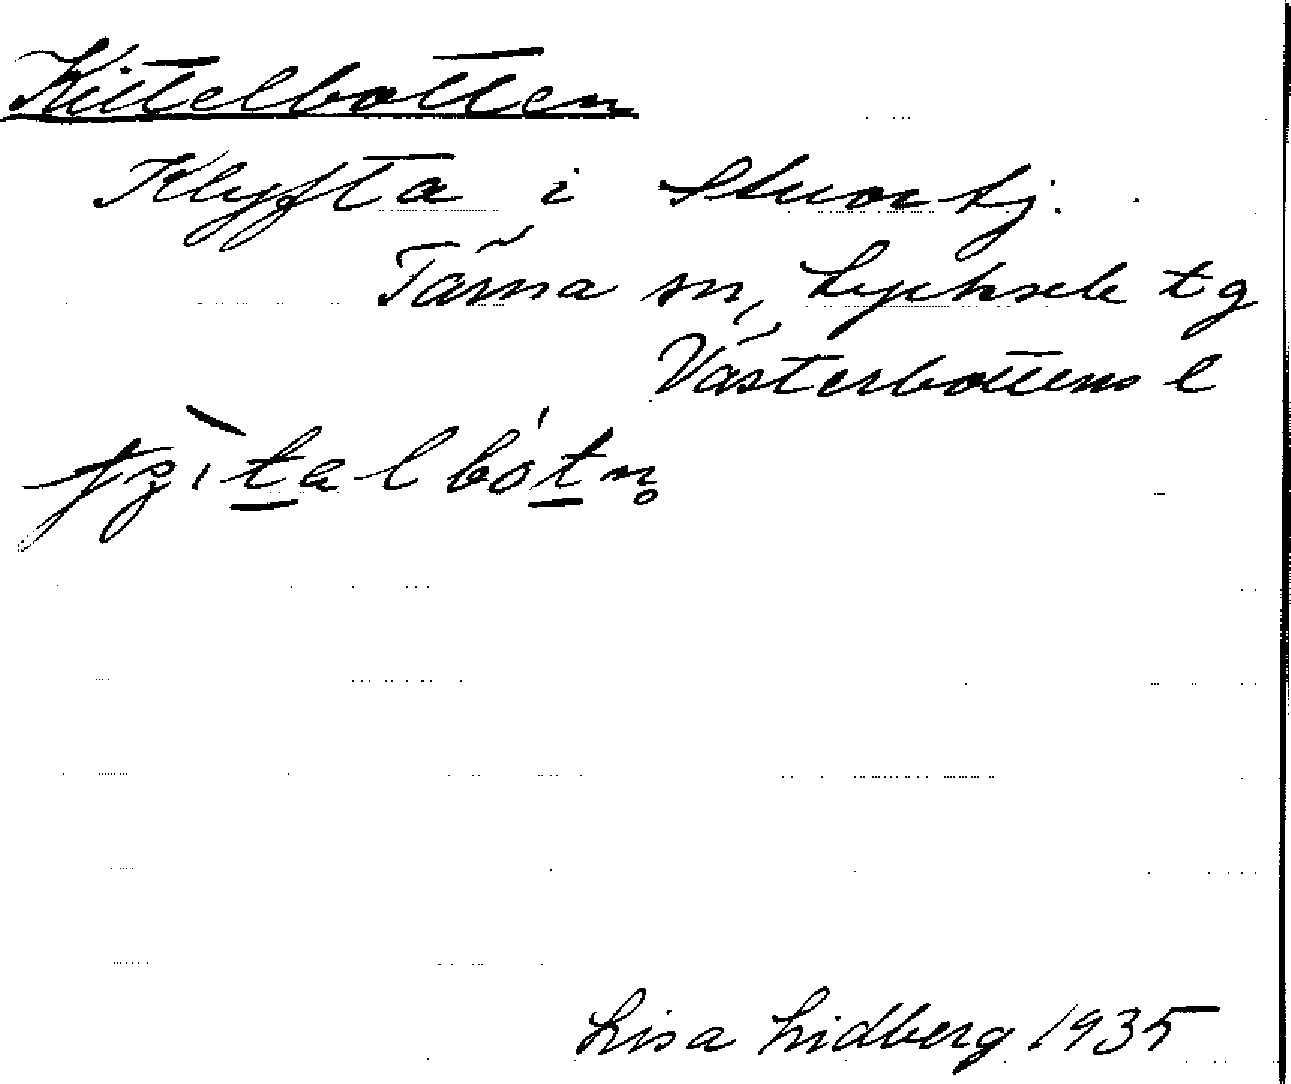 Kittelbotten
Klyfta i
Tärna sn, Lycksele tg
Västerbottens l
Lisa Lidberg 1935